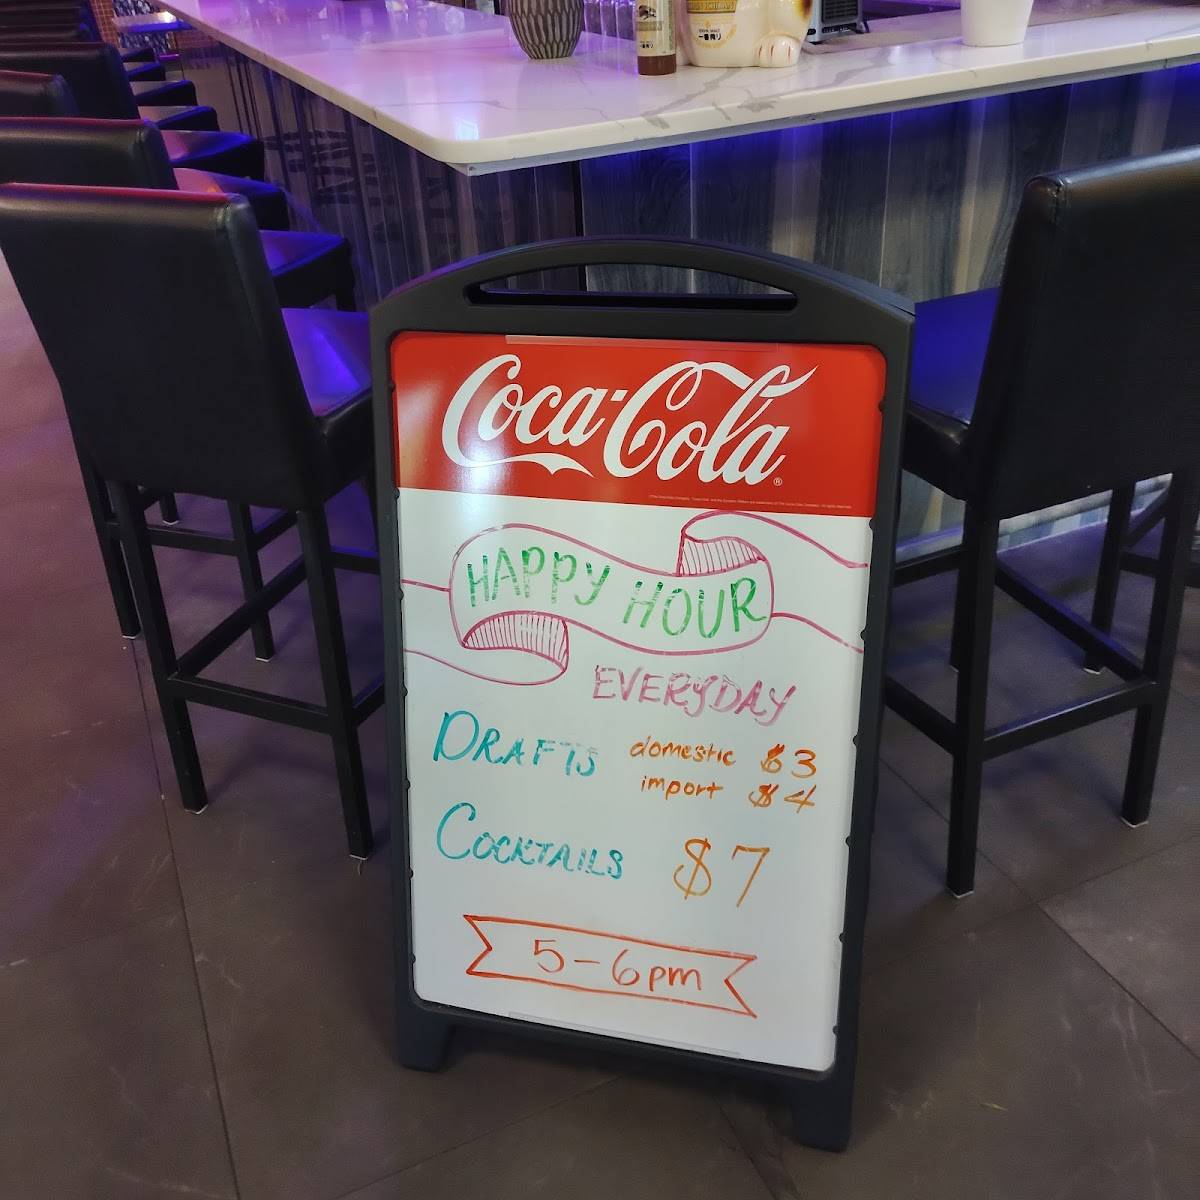 一番搾り
Coca-Cola®
HAPPY HOUR
EVERYDAY
DRAFTS domestic $3
import $4
COCKTAILS $7
5-6pm